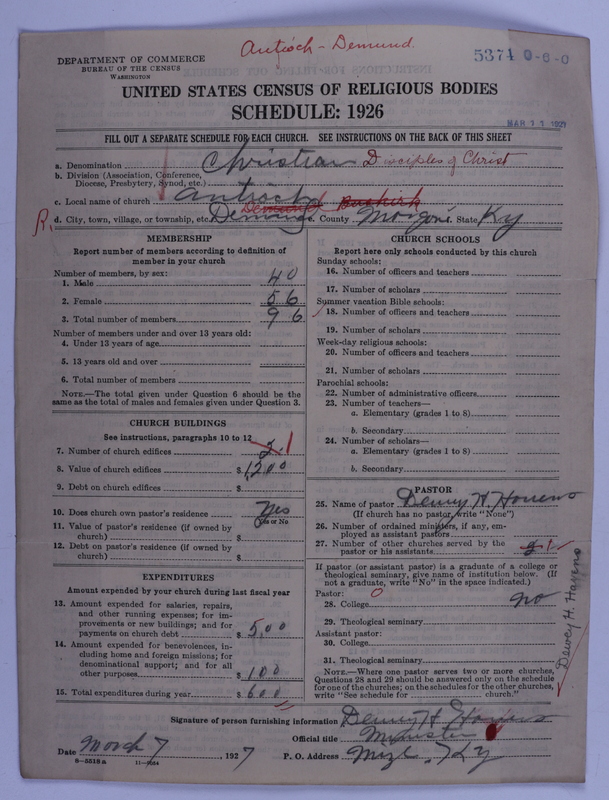 Antioch - Demund.
5374 0-6-0
DEPARTMENT OF COMMERCE
BUREAU OF THE CENSUS
WASHINGTON
UNITED STATES CENSUS OF RELIGIOUS BODIES
SCHEDULE: 1926
MAR 11 1927
FILL OUT A SEPARATE SCHEDULE FOR EACH CHURCH. SEE INSTRUCTIONS ON THE BACK OF THIS SHEET
a. Denomination Christian Disciples of Christ
b. Division (Association, Conference, Diocese, Presbytery, Synod, etc.)
c. Local name of church Antioch
R. d. City, town, village, or township, etc. Demund County Morgan State Ky
MEMBERSHIP
Report number of members according to definition of
member in your church
Number of members, by sex:
1. Male 40
2. Female 56
3. Total number of members 96
Number of members under and over 13 years old:
4. Under 13 years of age
5. 13 years old and over
6. Total number of members
NOTE.—The total given under Question 6 should be the
same as the total of males and females given under Question 3.
CHURCH BUILDINGS
See instructions, paragraphs 10 to 12
7. Number of church edifices 2 1
8. Value of church edifices $ 1,200
9. Debt on church edifices $
10. Does church own pastor's residence Yes
Yes or No
11. Value of pastor's residence (if owned by
church) $
12. Debt on pastor's residence (if owned by
church) $
EXPENDITURES
Amount expended by your church during last fiscal year
13. Amount expended for salaries, repairs,
and other running expenses; for im-
provements or new buildings; and for
payments on church debt $ 5,00
14. Amount expended for benevolences, in-
cluding home and foreign missions; for
denominational support; and for all
other purposes $ 100
15. Total expenditures during year $ 600
CHURCH SCHOOLS
Report here only schools conducted by this church
Sunday schools:
16. Number of officers and teachers
17. Number of scholars
Summer vacation Bible schools:
18. Number of officers and teachers
19. Number of scholars
Week-day religious schools:
20. Number of officers and teachers
21. Number of scholars
Parochial schools:
22. Number of administrative officers
23. Number of teachers—
a. Elementary (grades 1 to 8)
b. Secondary
24. Number of scholars—
a. Elementary (grades 1 to 8)
b. Secondary
PASTOR
25. Name of pastor Dewey H. Havens
(If church has no pastor, write "None")
26. Number of ordained ministers, if any, em-
ployed as assistant pastors
27. Number of other churches served by the
pastor or his assistants 2 1
If pastor (or assistant pastor) is a graduate of a college or
theological seminary, give name of institution below. (If
not a graduate, write "No" in the space indicated.)
Pastor: 0
28. College no
29. Theological seminary
Assistant pastor:
30. College
31. Theological seminary
NOTE.—Where one pastor serves two or more churches,
Questions 28 and 29 should be answered only on the schedule
for one of the churches; on the schedules for the other churches,
write "See schedule for church."
Dewey H. Havens
Signature of person furnishing information Dewey H Havens
Official title Minister
Date March 7, 1927 P. O. Address Mize, Ky
8-5518a 11-9034